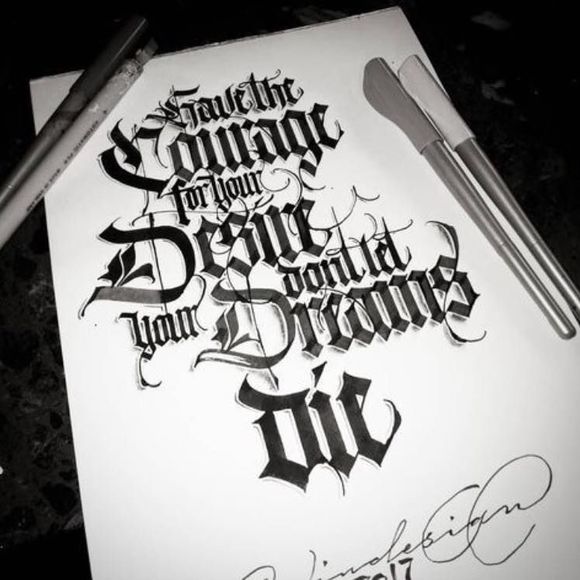 Have the
Courage
for your
Desire
dont let
your Dreams
die
2017